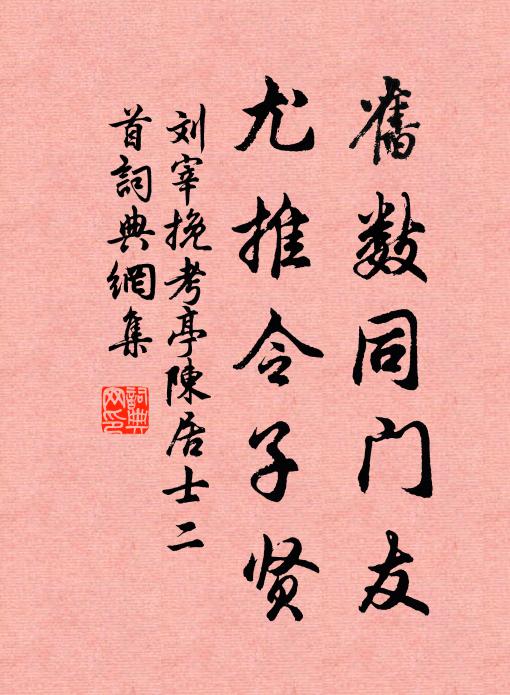 舊数同门友
尤推令子贤
刘宰挽考亭陳居士二
首詞典網集
詞典
网印